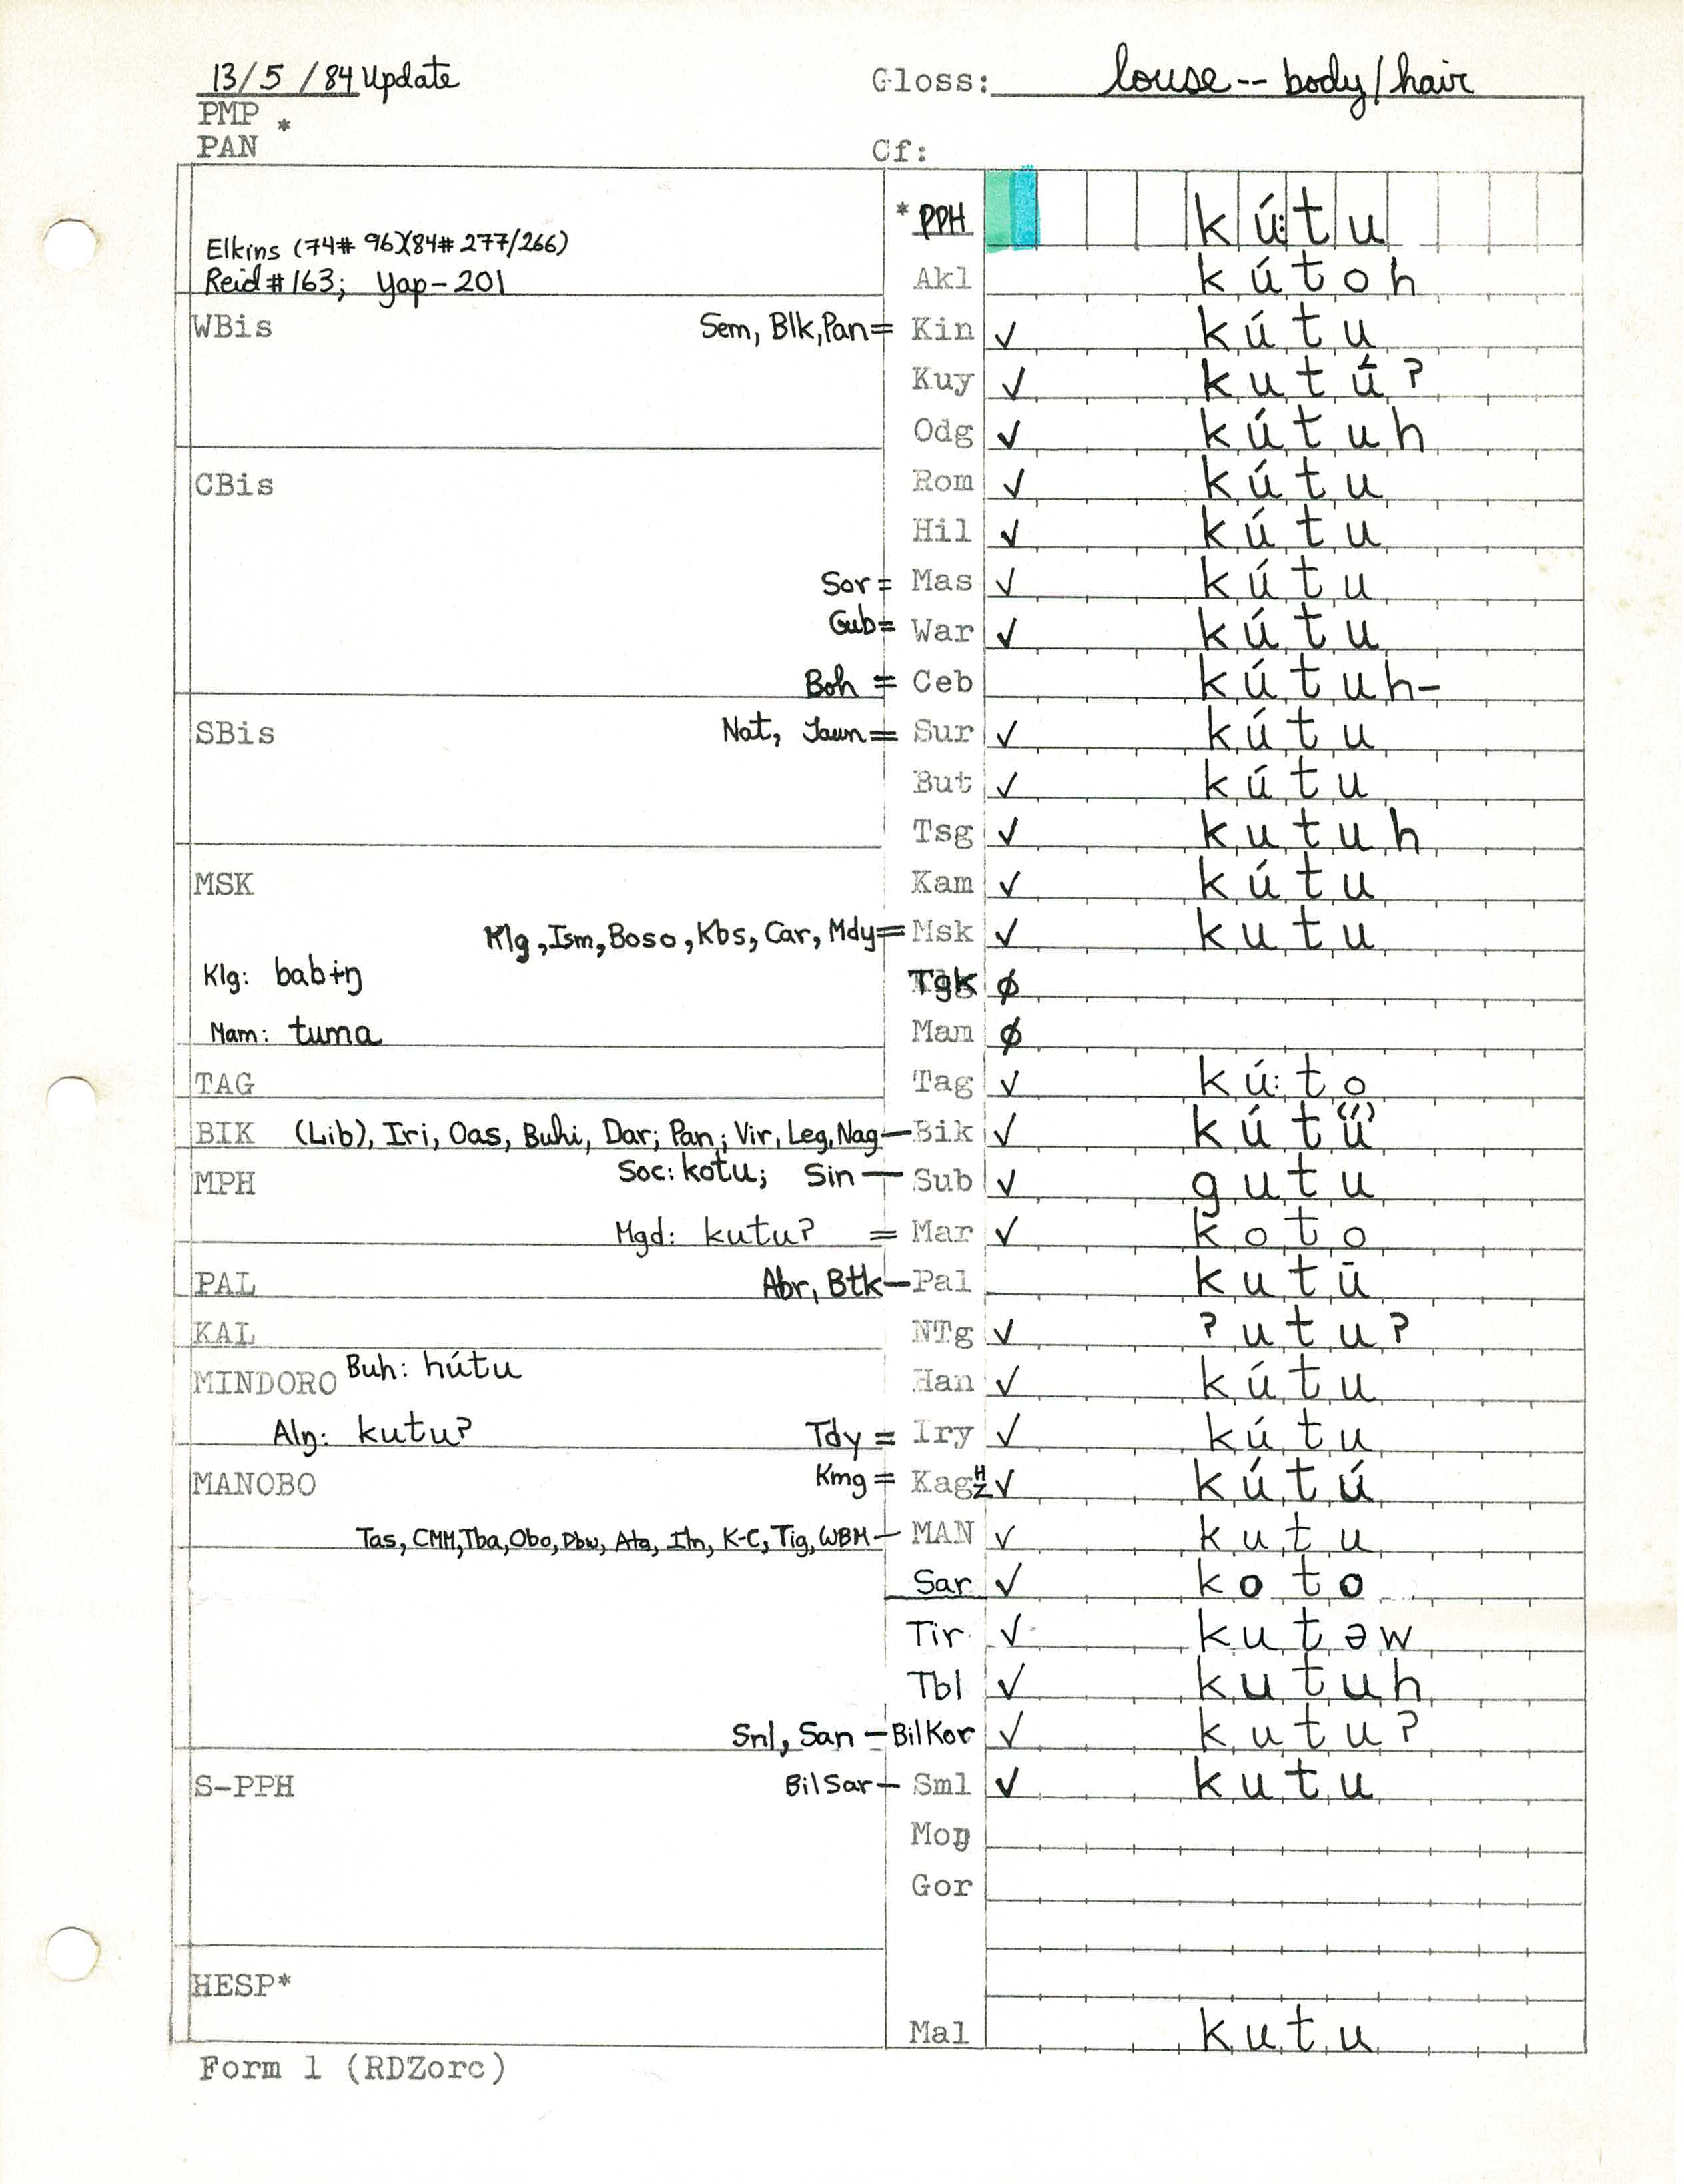 13/5/84 Update Gloss: louse -- body/hair
PMP *
PAN Cf:
* PPH kú:tu
Elkins (74# 96)(84# 277/266)
Reid #163; Yap-201 Akl kútoh
WBis Sem, Blk, Pan = Kin ✓ kútu
Kuy ✓ kutú?
Odg ✓ kútuh
CBis Rom ✓ kútu
Hil ✓ kútu
Sor = Mas ✓ kútu
Gub = War ✓ kútu
Boh = Ceb kútuh-
SBis Nat, Jaun = Sur ✓ kútu
But ✓ kútu
Tsg ✓ kutuh
MSK Kam ✓ kútu
Klg, Ism, Boso, Kbs, Car, Mdy = Msk ✓ kutu
Klg: babɨŋ Tgk ∅
Mam: tuma Mam ∅
TAG Tag ✓ kú:to
BIK (Lib), Iri, Oas, Buhi, Dar; Pan; Vir, Leg, Nag — Bik ✓ kútu(́)
MPH Soc: kotu; Sin — Sub ✓ gutu
Mgd: kutu? = Mar ✓ koto
PAL Abr, Btk — Pal kutū
KAL NTg ✓ ?utu?
MINDORO Buh: hútu Han ✓ kútu
Alŋ: kutu? Tdy = Iry ✓ kútu
MANOBO Kmg = Kag H/Z ✓ kútú
Tas, CMM, Tba, Obo, Dbw, Ata, Iln, K-C, Tig, WBM — MAN ✓ kutu
Sar ✓ koto
Tir ✓ kutəw
Tbl ✓ kutuh
Snl, San — BilKor ✓ kutu?
S-PPH BilSar — Sml ✓ kutu
Moŋ
Gor
HESP*
Mal kutu
Form 1 (RDZorc)